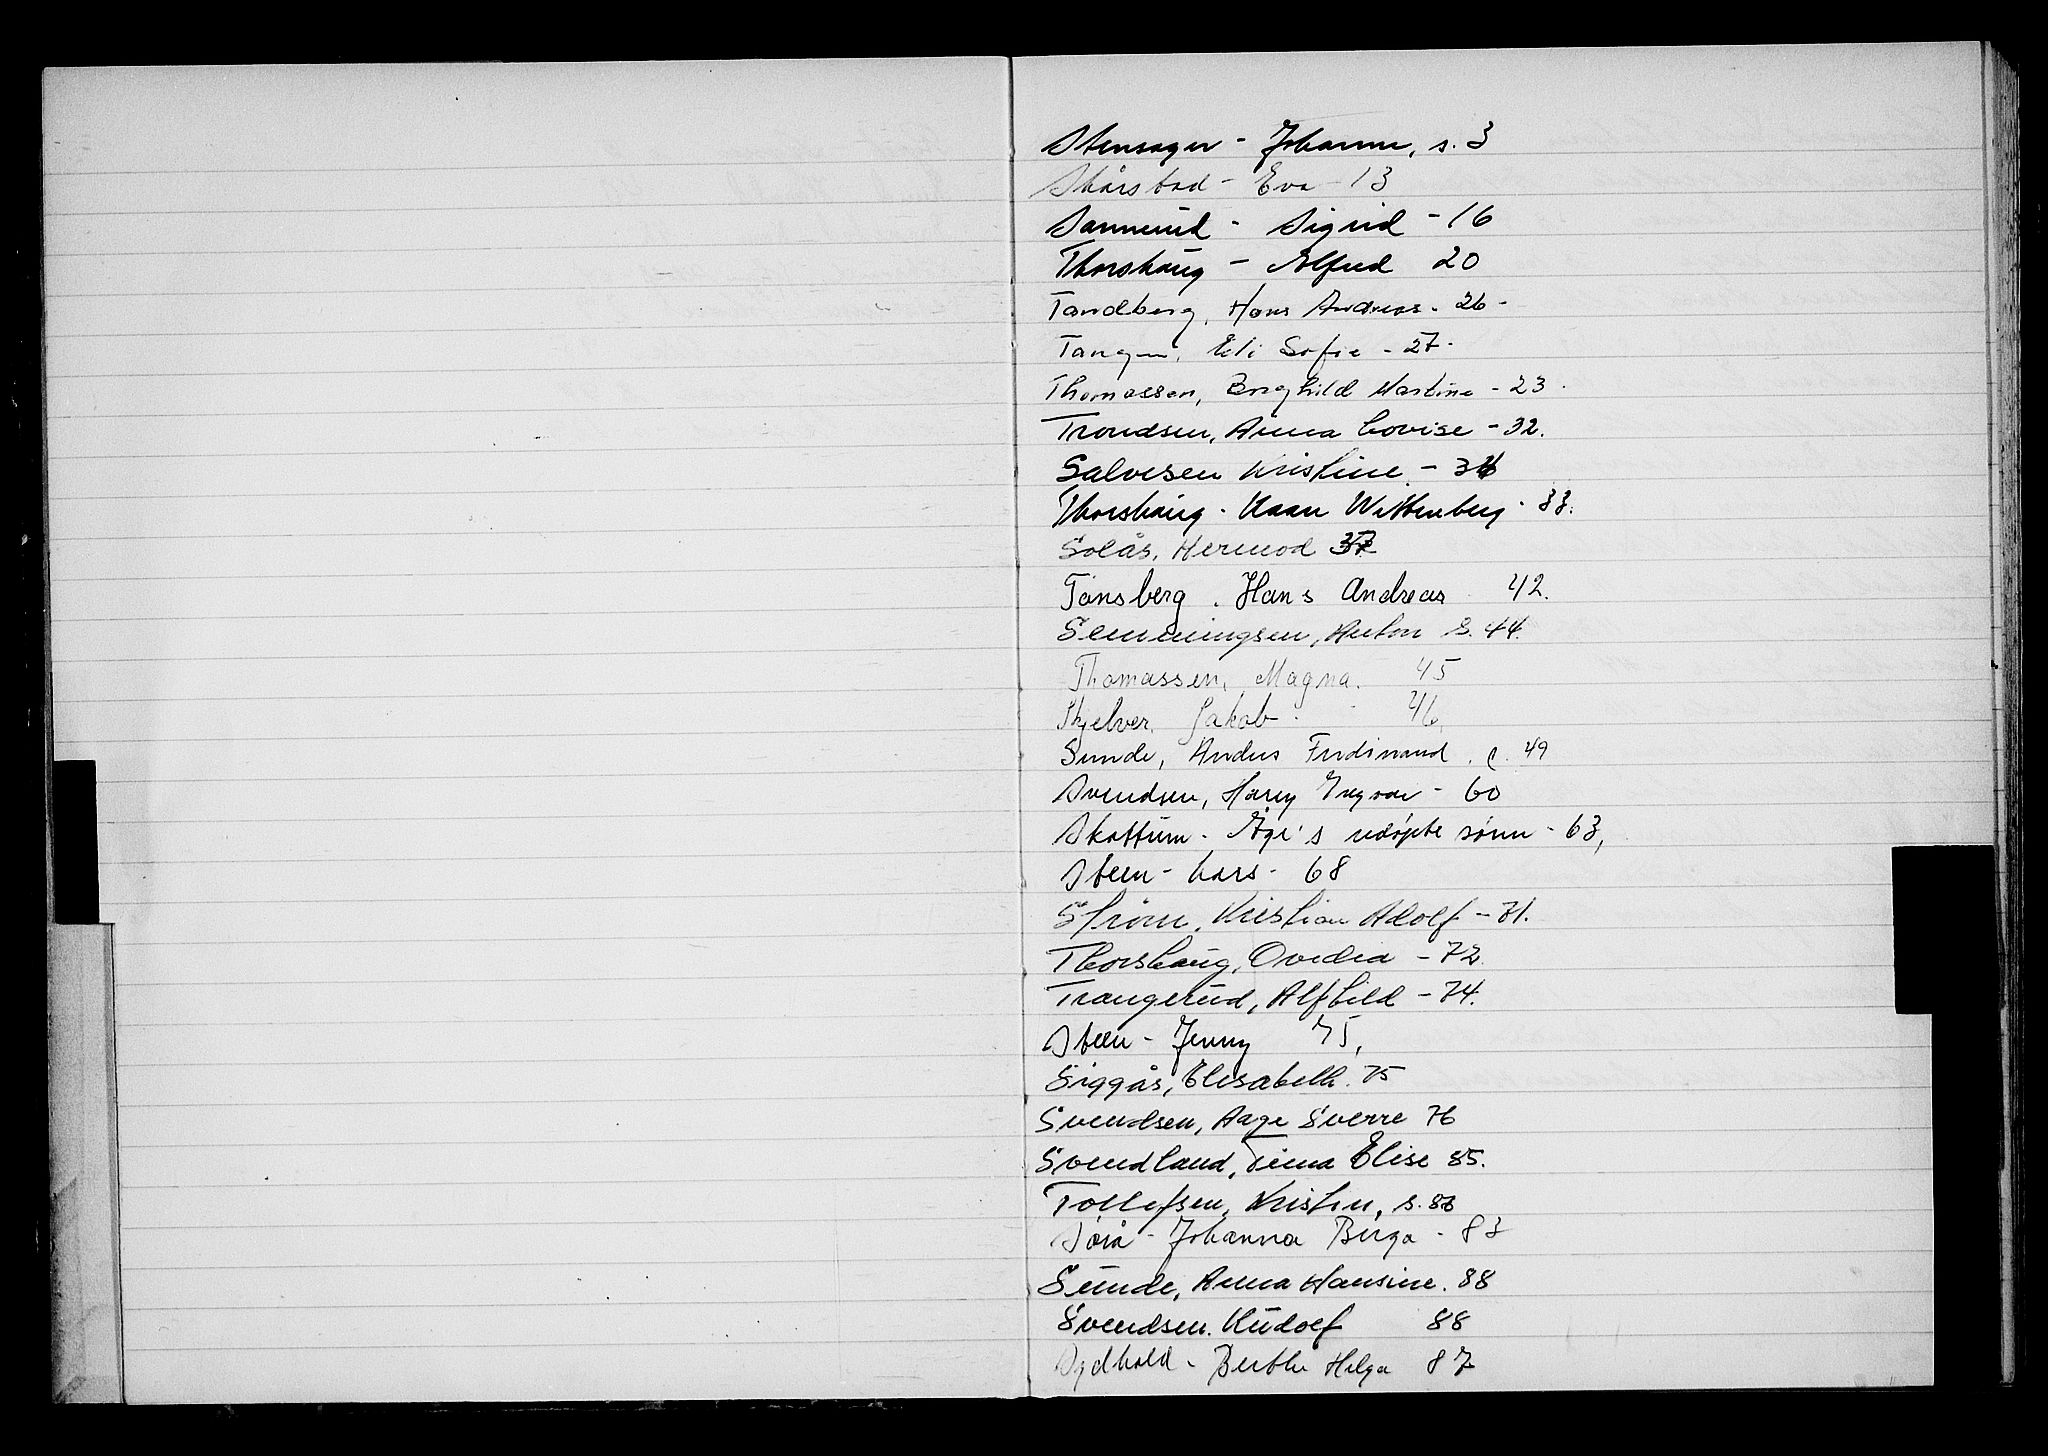 Stensager - Johanne, s. 3
Skårstad - Eva - 13
Sannerud - Sigrid - 16
Thorshaug - Alfred 20
Tandberg, Hans Andreas - 26 -
Tangen, Eli Sofie - 27 -
Thomassen, Borghild Martine - 23
Trondsen, Anna Lovise - 32.
Salvesen Kristine - 34
Thorshaug - Karen Wittenberg - 33.
Solås, Hermod 37
Tønsberg, Hans Andreas 42.
Semmingsen, Anton s. 44.
Thomassen, Magna. 45
Skjelver, Jakob - 46
Sunde, Anders Ferdinand. p. 49
Svendsen, Harry Ingvar - 60
Skattum - Åge's udøpte sønn - 63,
Steen - Lars - 68
Strøm, Kristian Adolf - 71.
Thorshaug, Ovedia - 72
Trangerud, Alfhild - 74.
Steen - Jenny 75,
Siggås, Elisabeth. 75
Svendsen, Aage Sverre 76
Svendland, Tinna Elise 85.
Tollefsen, Kristin, s. 86
Johanna Birga - 83
Sunde, Anna Hansine. 88
Svendsen. Rudolf 88
Sydhold - Berthe Helga 87